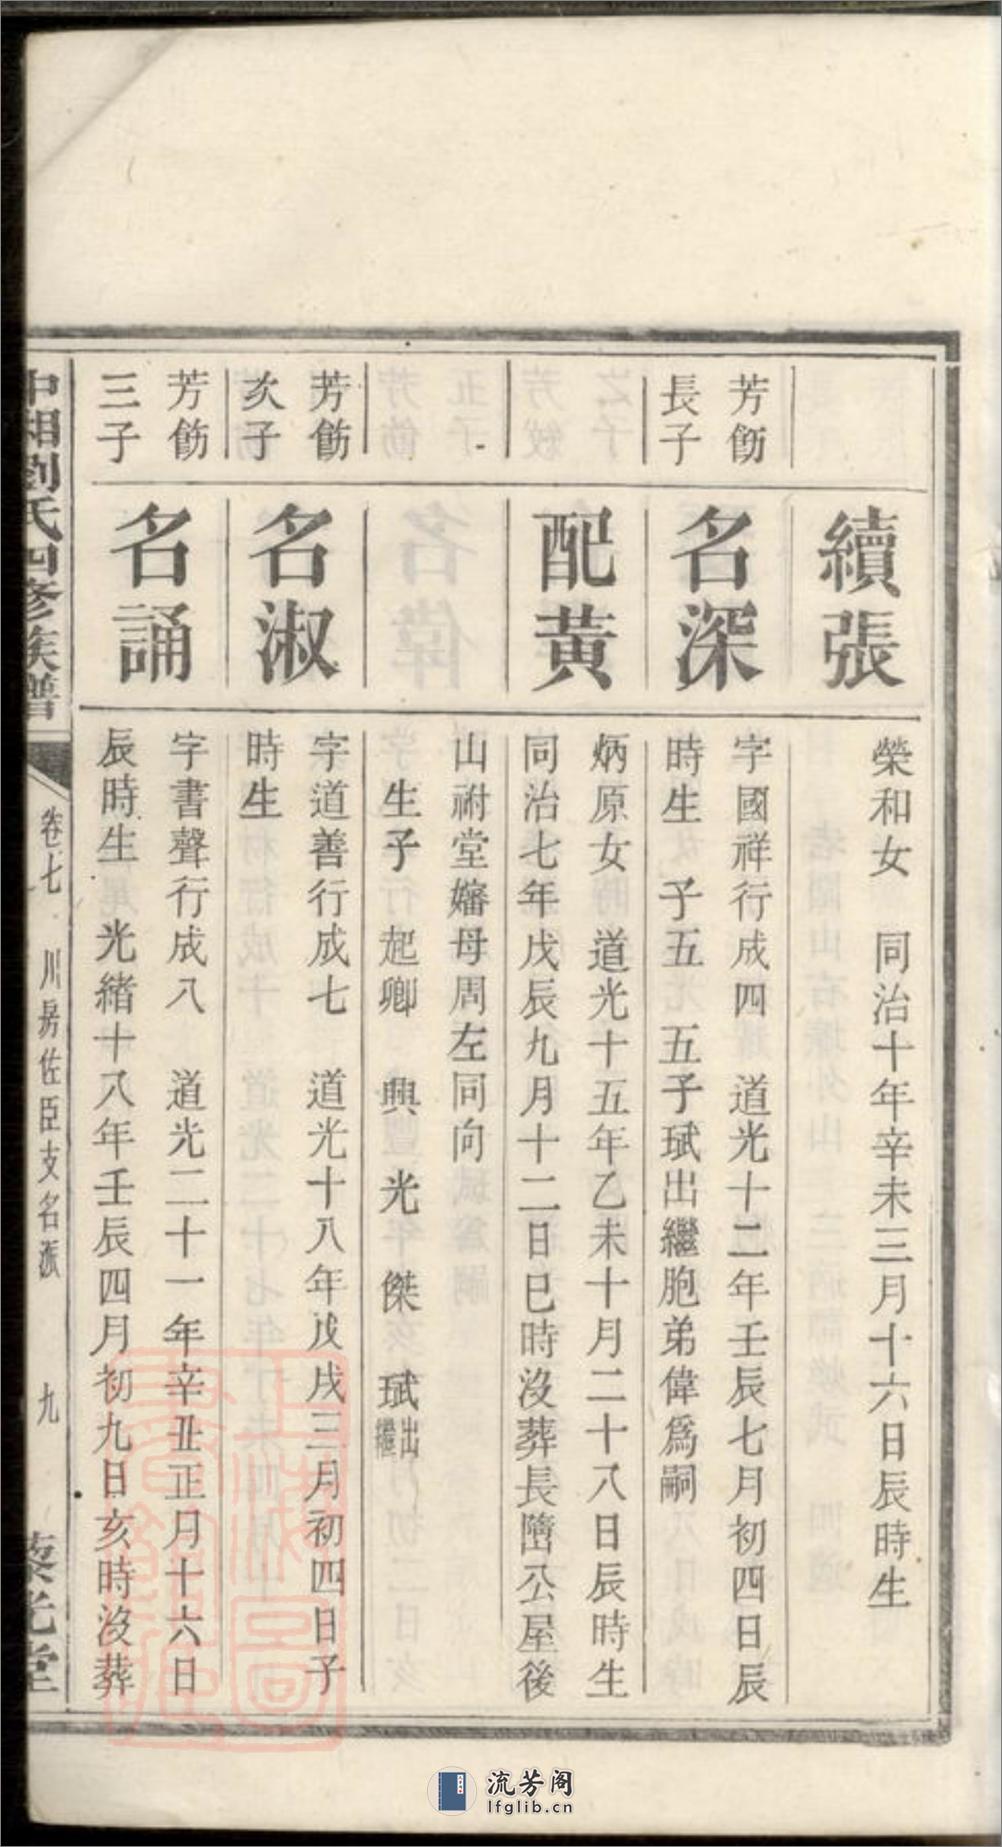 續張
榮和女　同治十年辛未三月十六日辰時生
芳飭
長子
名深
字國祥行成四　道光十二年壬辰七月初四日辰
時生　子五　五子珷出繼胞弟偉爲嗣
配黃
炳原女　道光十五年乙未十月二十八日辰時生
同治七年戊辰九月十二日巳時沒葬長隮公屋後
山祔堂嬸母周左同向
生子　起卿　興　光　傑　珷出繼
芳飭
次子
名淑
字道善行成七　道光十八年戊戌三月初四日子
時生
芳飭
三子
名誦
字書聲行成八　道光二十一年辛丑正月十六日
辰時生　光緒十八年壬辰四月初九日亥時沒葬
中湘劉氏四修族譜
卷七　川房佐臣支名派　九
藜光堂
流芳阁
lfglib.cn